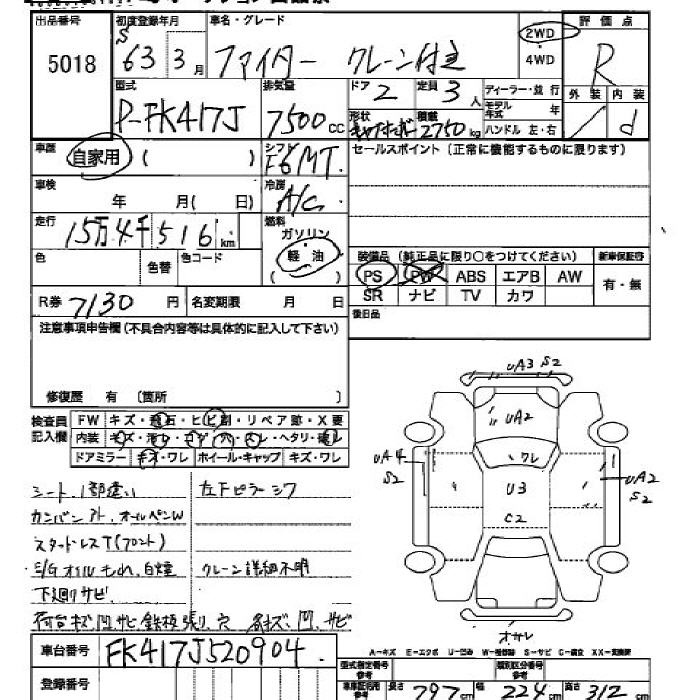 出品番号 初度登録年月 車名・グレード 評価点
5018 S63 3月 ファイター クレーン付き 2WD 4WD R
型式 排気量 ドア 2 定員 3人 ディーラー・並行 外装 内装
P-FK417J 7500cc 形状 積載 2750kg モデル年式 年 ハンドル 左・右 / d
車歴 自家用 ( ) シフト F6MT. セールスポイント (正常に機能するものに限ります)
車検 年 月( 日) 冷房 A/C
走行 15万4千516km 燃料 ガソリン 軽油
色 色替 色コード 装備品 (純正品に限り○をつけてください) 新車保証書
PS PW ABS エアB AW 有・無
R券 7130円 名変期限 月 日 SR ナビ TV カワ
注意事項申告欄 (不具合内容等は具体的に記入して下さい) 後日品
修復歴 有 〔箇所 〕
検査員記入欄 FW キズ・飛石・ヒビ割・リペア跡・X要
内装 キズ・汚レ・コゲ・穴・スレ・ヘタリ・破レ
ドアミラー キズ・ワレ ホイール・キャップ キズ・ワレ
UA3 S2
UA2
ワレ
UA4 S2
U3
UA2 S2
C2
オサレ
シート1部違い 左Fピラーシワ
カンバンアト、オールペンW
スタッドレスT(フロント)
E/Gオイルもれ、白煙 クレーン詳細不明
下廻りサビ
荷台キズ、凹、サビ、鉄板張り、穴 各キズ、凹、サビ
A-キズ E-エクボ U-凹み W-補修跡 S-サビ C-腐食 XX-交換済
車台番号 FK417J520904.
型式指定番号 参考 類別区分番号 参考
登録番号 長さ 797cm 幅 224cm 高さ 312cm